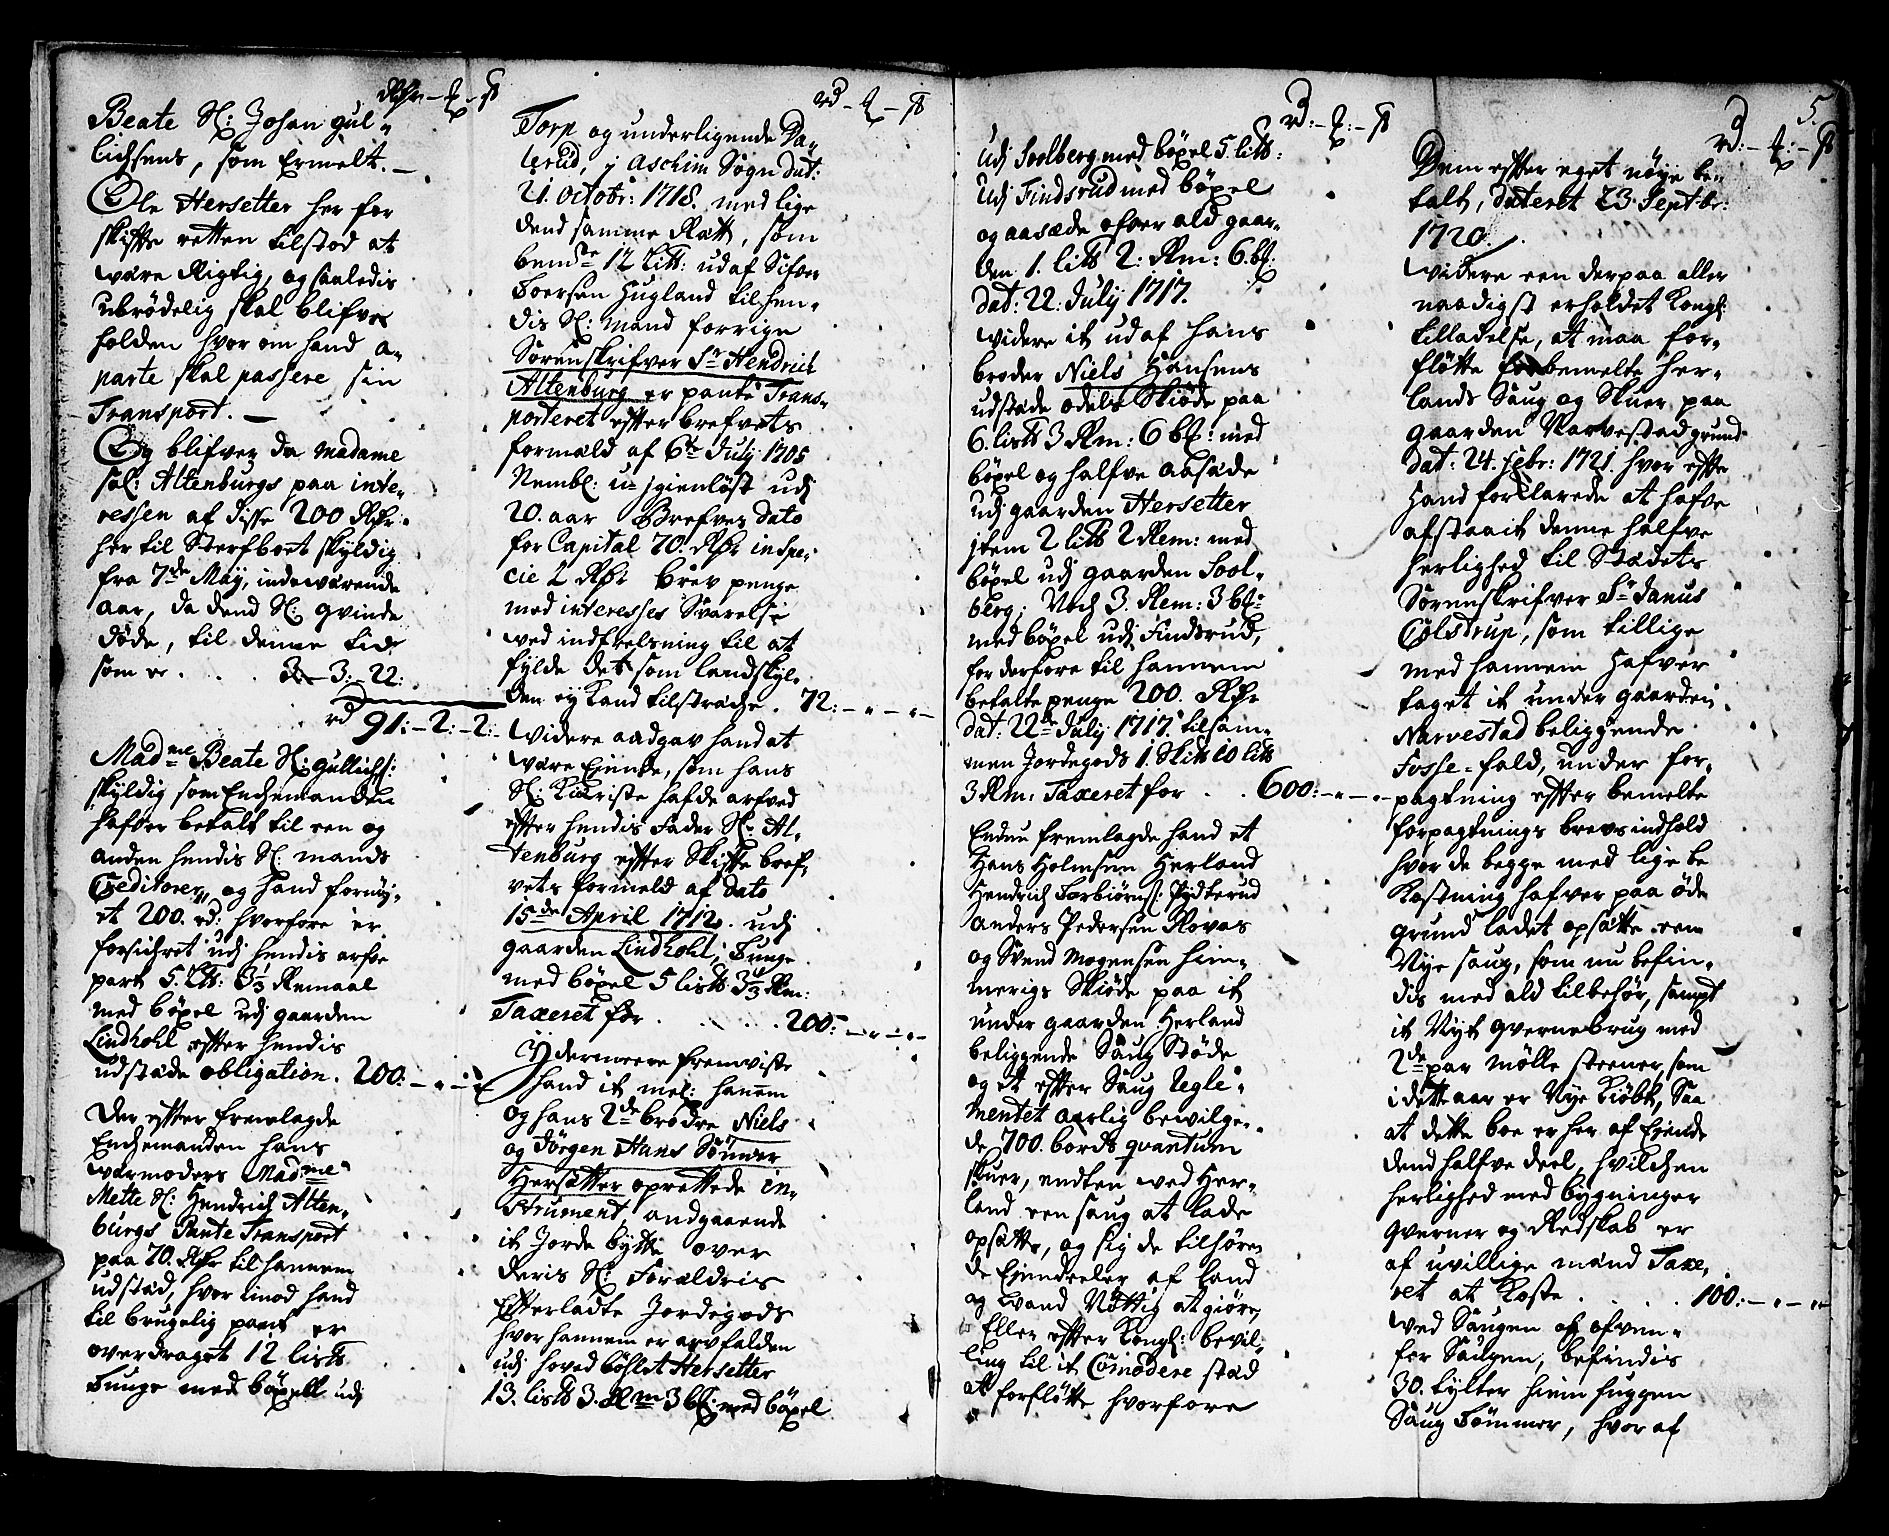 Rdr - # - ß
Beate Sl: Johan Gul-
lichsens, som Ermelt. —
Ole Hersetter her for
skifte retten tilstod at
være Rigtig, og saaledis
ubrødelig skal blifve
holden hvor om hand a-
parte skal passere sin
Transport. —
Og blifver da Madame
Sal: Altenburgs paa inte-
ressen af disse 200 Rdr:
her til Sterfboet skyldig
fra 7de May, indeværende
aar, da dend Sl: qvinde
døde, til denne tid
som er . . . . 3:-22:
rd 91:-2:-2:
Madme Beate Sl: Gullichs:
skyldig som Enchemanden
hafver betalt til een og
anden hendis Sl: mands
Creditorer, og hand fornøy-
et 200. rd: hvorfore er
forsichret udj hendis arfve
part 5. Lts: 3 1/3 Remaal
med bøxel udj gaarden
Lindhohl efter hendis
udstæde obligation. 200:-"-"
Der efter fremlagde
Enchemanden hans
Værmoders Madme
Mette Sl: Hendrich Alten-
burgs Pante Transport
paa 70. Rdr til hannem
udstæd, hvor imod hand
til brugelig pant er
overdraget 12 lispd
Tunge med bøxel udj
rd - # - ß
Torp og underligende Da-
lerud, j Aschim Sogn dat:
21. Octobr: 1718. med lige
dend samme Rætt, som
bemte 12 Litt: ud af Sifver
Toersen Hugland til hen-
dis Sl: mand forrige
Sorenskrifver Sr Hendrich
Altenburg er pante Trans-
porteret efter brefvets
formæld af 6te July 1705
Nembl: u-jgienløst udj
20. aar Brefves Dato
for Capital 70. Rdr in Spe-
cie 2 Rdr brev penge
med interesses Svarelse
ved indfrelsning til at
fylde det som landskyl-
den ej kand tilstræche. 72:-"-"-
Videre aadgav hand at
være Eiende, som hans
Sl: Kieriste hafde arfved
efter hendis Fader Sl: Al-
tenburg efter Skifte bref-
vets formeld af Dato
15de April 1712. udj
gaarden Lindhohl, Tunge
med bøxel 5 lispd 3 1/3 Rm:
Taxeret for . . . . . 200:-"-"-
Ydermeere fremviste
hand it mel: hannem
og hans 2de brødre Niels
og Jørgen Hans Sønner
Hersætter oprettede in-
strument, andgaaende
it Jorde bytte over
deris Sl: Forældris
Efterladte Jordegods
hvor hannem er arvfalden
udj hoved bøhlet Hersetter
13. lispd 3. Rm 3 bf: med bøxel
rd:-#:-ß
Udj Soolberg med bøxel 5. litt:
Udj Findsrud med bøxel
og aasæde ofver ald gaar-
den 1. litt 2: Rm: 6. bf.
dat: 22. July 1717.
Videre it ud af hans
broder Niels Hansens
udstæde odels Skiøde paa
6. lisps 3 Rm: 6 bf: med
bøxel og halfve aasæde
udj gaarden Hersetter
jtem 2 litt 2 Rem: med
bøxel udj gaarden Sool-
berg; Noch 3. Rem: 3 bf:
med bøxel udj Findsrud,
for derfore til hannem
betalte penge 200. Rdr
dat: 22de July 1717. tilsam-
men Jordegods 1. Skits 10 litt
3 Rm: Taxeret for . . 600:-"-"-
Endnu fremlagde hand et
Hans Holmsen Herland
Hendrich Torbiørns: Pydterud
Anders Pedersen Rovas
og Svend Mogensen Him-
merigs Skiøde paa it
under gaarden Herland
beliggende Saug Støde
og et efter Saug Regle-
mentet aarlig bevilge-
de 700. bords qvantum
skuer, endten ved Her-
land een saug at lade
opsætte, og sig de tilhøren-
de Eiendeeler af Land
og vand Nøttig at giøre,
Eller efter Kongl: bevil-
ling til it Comodere stæd
at forfløtte hvorfore
5.
rd:-#:-ß
Dem efter eget nøye be-
talt, dateret 23. Septbr:
1720.
Videre een derpaa aller
naadigst erholdet Kongl:
tilladelse, at maa for-
fløtte bemelte Her-
lands Saug og Skuer paa
gaarden Narvestad grund
dat: 24. Febr: 1721. hvor efter
Hand forklarede at hafve
afstaaet denne halfve
herlighed til Stædets
Sorenskrifver Sr Janus
Colstrup, som tillige
med hannem hafver
taget it under gaarden
Narvestad beliggende
Fosse-fald, under for-
pagtning efter bemelte
forpagtnings brevs indhold
hvor de begge med lige be
Kostning hafver paa øde
grund ladet opsætte een
Nye saug, som nu befin-
dis med ald tilbehør, sampt
it Nyt qvernebrug med
2de par mølle steener, som
i dette aar er Nye Kiøbt, Saa
at dette boe er her af Eiende
dend halfve deel, hvilchen
herlighed med bygninger
qverner og Redskab er
af uvillige mænd Taxe-
ret at Koste . . . . 100:-"-"-
Ved Saugen og ofven-
for Saugen, befindis
30. tylter hiem huggen
Saug Tømmer, hvor af